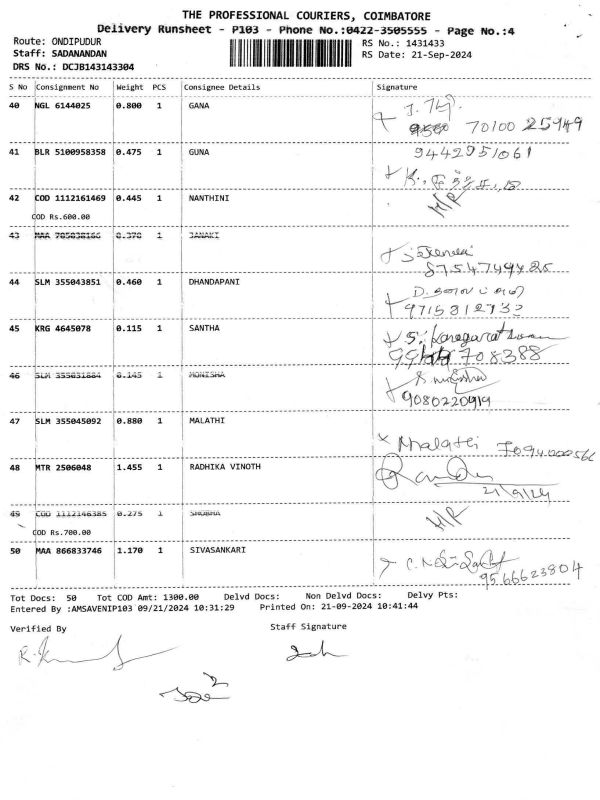 THE PROFESSIONAL COURIERS, COIMBATORE
Delivery Runsheet - P103 - Phone No.:0422-3505555 - Page No.:4
Route: ONDIPUDUR
RS No.: 1431433
Staff: SADANANDAN
RS Date: 21-Sep-2024
DRS No.: DCJB143143304
S No Consignment No Weight PCS Consignee Details Signature
40 NGL 6144025 0.800 1 GANA
70100 25949
41 BLR 5100958358 0.475 1 GUNA 9442951061
42 COD 1112161469 0.445 1 NANTHINI H/R
COD Rs.600.00
43 MAA 705038166 0.370 1 JANAKI
8754749425
44 SLM 355043851 0.460 1 DHANDAPANI
45 KRG 4645078 0.115 1 SANTHA
708388
46 SLM 355031884 0.145 1 MONISHA
9080220919
47 SLM 355045092 0.880 1 MALATHI
x Malathi 7094000566
48 MTR 2506048 1.455 1 RADHIKA VINOTH
21/9/24
49 COD 1112146385 0.275 1 SHOBHA H/R
COD Rs.700.00
50 MAA 866833746 1.170 1 SIVASANKARI
9566623804
Tot Docs: 50 Tot COD Amt: 1300.00 Delvd Docs: Non Delvd Docs: Delvy Pts:
Entered By :AMSAVENIP103 09/21/2024 10:31:29 Printed On: 21-09-2024 10:41:44
Verified By Staff Signature